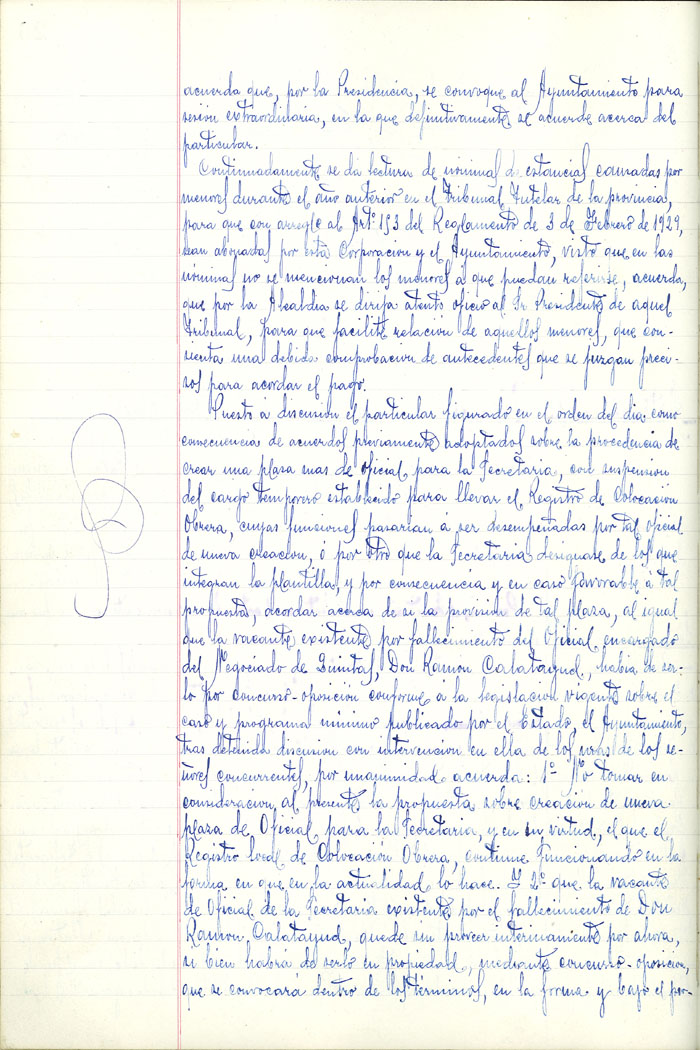 acuerda que, por la Presidencia, se convoque al Ayuntamiento para
sesión extraordinaria, en la que definitivamente se acuerde acerca del
particular.
Continuadamente se da lectura de nóminas de estancias causadas por
menores durante el año anterior en el Tribunal Tutelar de la provincia,
para que con arreglo al Artº 153 del Reglamento de 3 de Febrero de 1929,
sean abonadas por esta Corporacion y el Ayuntamiento, visto que en las
nóminas no se mencionan los menores á que puedan referirse, acuerda,
que por la Alcaldia se dirija atento oficio al Sr Presidente de aquel
Tribunal, para que facilite relacion de aquellos menores, que con-
sienta una debida comprobacion de antecedentes que se juzgan preci-
sos para acordar el pago.
Puesto á discusion el particular figurado en el orden del dia como
consecuencia de acuerdos previamente adoptados sobre la procedencia de
crear una plaza mas de oficial para la Secretaria, con suspension
del cargo temporero establecido para llevar el Registro de Colocacion
Obrera, cuyas funciones pasarian á ser desempeñadas por tal oficial
de nueva creacion, ó por otro que la Secretaria designase de los que
integran la plantilla, y por consecuencia y en caso favorable á tal
propuesta, acordar acerca de si la provision de tal plaza, al igual
que la vacante existente por fallecimiento del Oficial encargado
del Negociado de Quintas, Don Ramon Calatayud, habia de ser-
lo por concurso-oposición conforme á la legislacion vigente sobre el
caso y programa minimo publicado por el Estado, el Ayuntamiento,
tras detenida discusion con intervencion en ella de los mas de los se-
ñores concurrentes, por unanimidad acuerda: 1º No tomar en
consideracion al presente la propuesta sobre creacion de nueva
plaza de Oficial para la Secretaria, y en su virtud, el que el
Registro local de Colocación Obrera, continue funcionando en la
forma en que en la actualidad lo hace. Y 2º que la vacante
de Oficial de la Secretaria existente por el fallecimiento de Don
Ramon Calatayud, quede sin proveer interinamente por ahora,
si bien habrá de serlo en propiedad, mediante concurso-oposicion,
que se convocará dentro de los términos, en la forma y bajo el por-